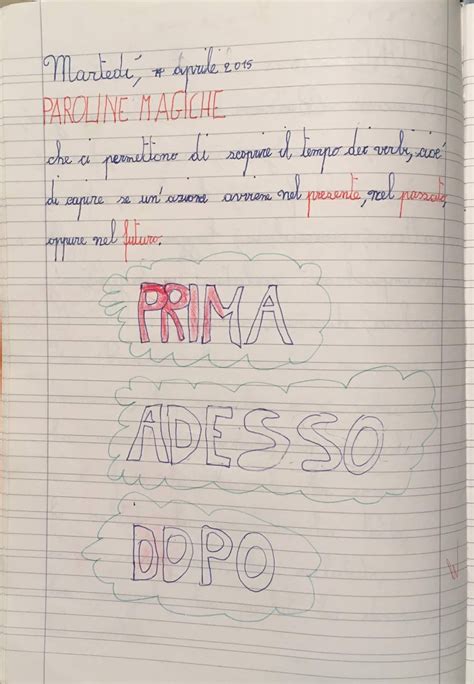 Martedì, 7 aprile 2015
PAROLINE MAGICHE
che ci permettono di scoprire il tempo dei verbi, cioè
di capire se un'azione avviene nel presente, nel passato,
oppure nel futuro.
PRIMA
ADESSO
DOPO